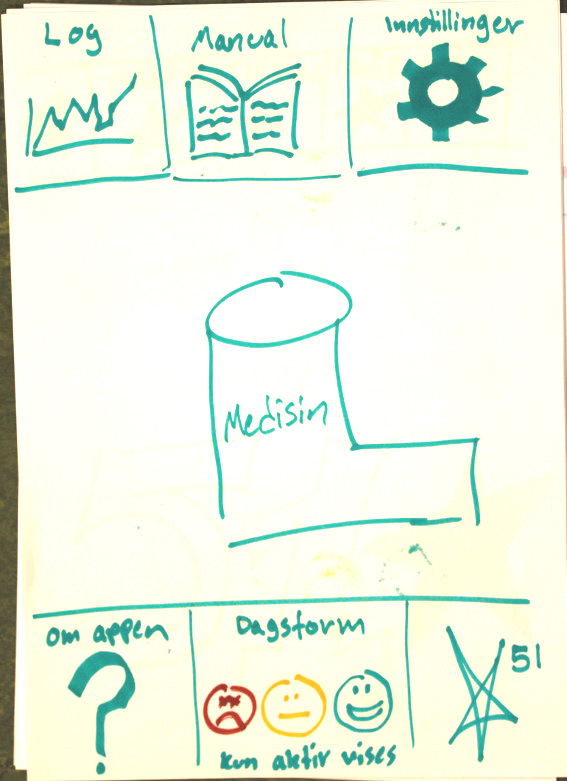 Log
Manual
Innstillinger
Medisin
Om appen
Dagsform
kun aktiv vises
51